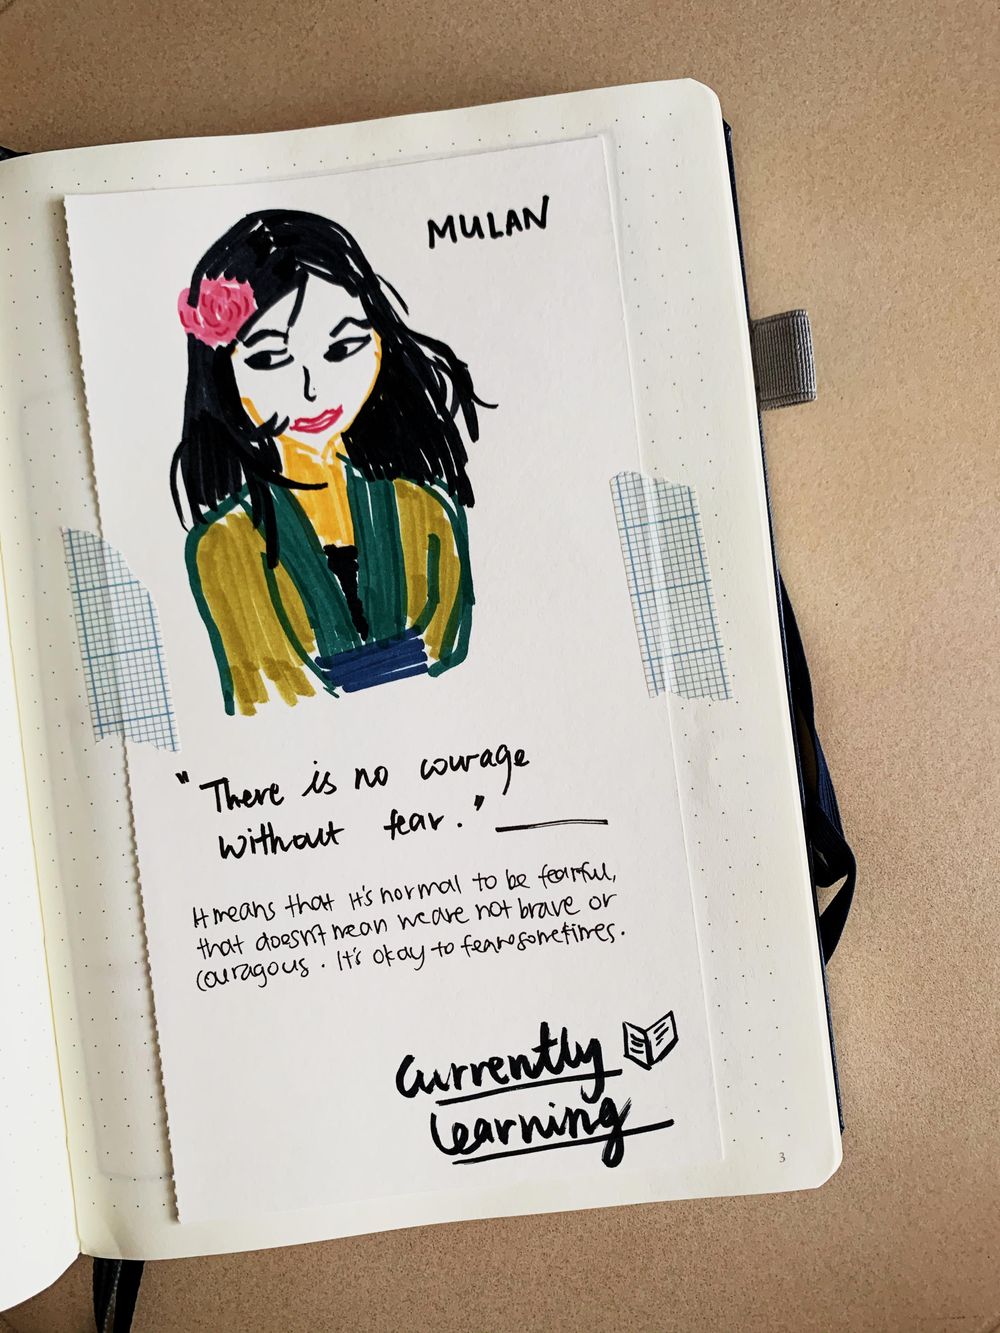 MULAN
"There is no courage
without fear."
It means that it's normal to be fearful,
that doesn't mean we are not brave or
couragous. It's okay to fear sometimes.
Currently
Learning
3